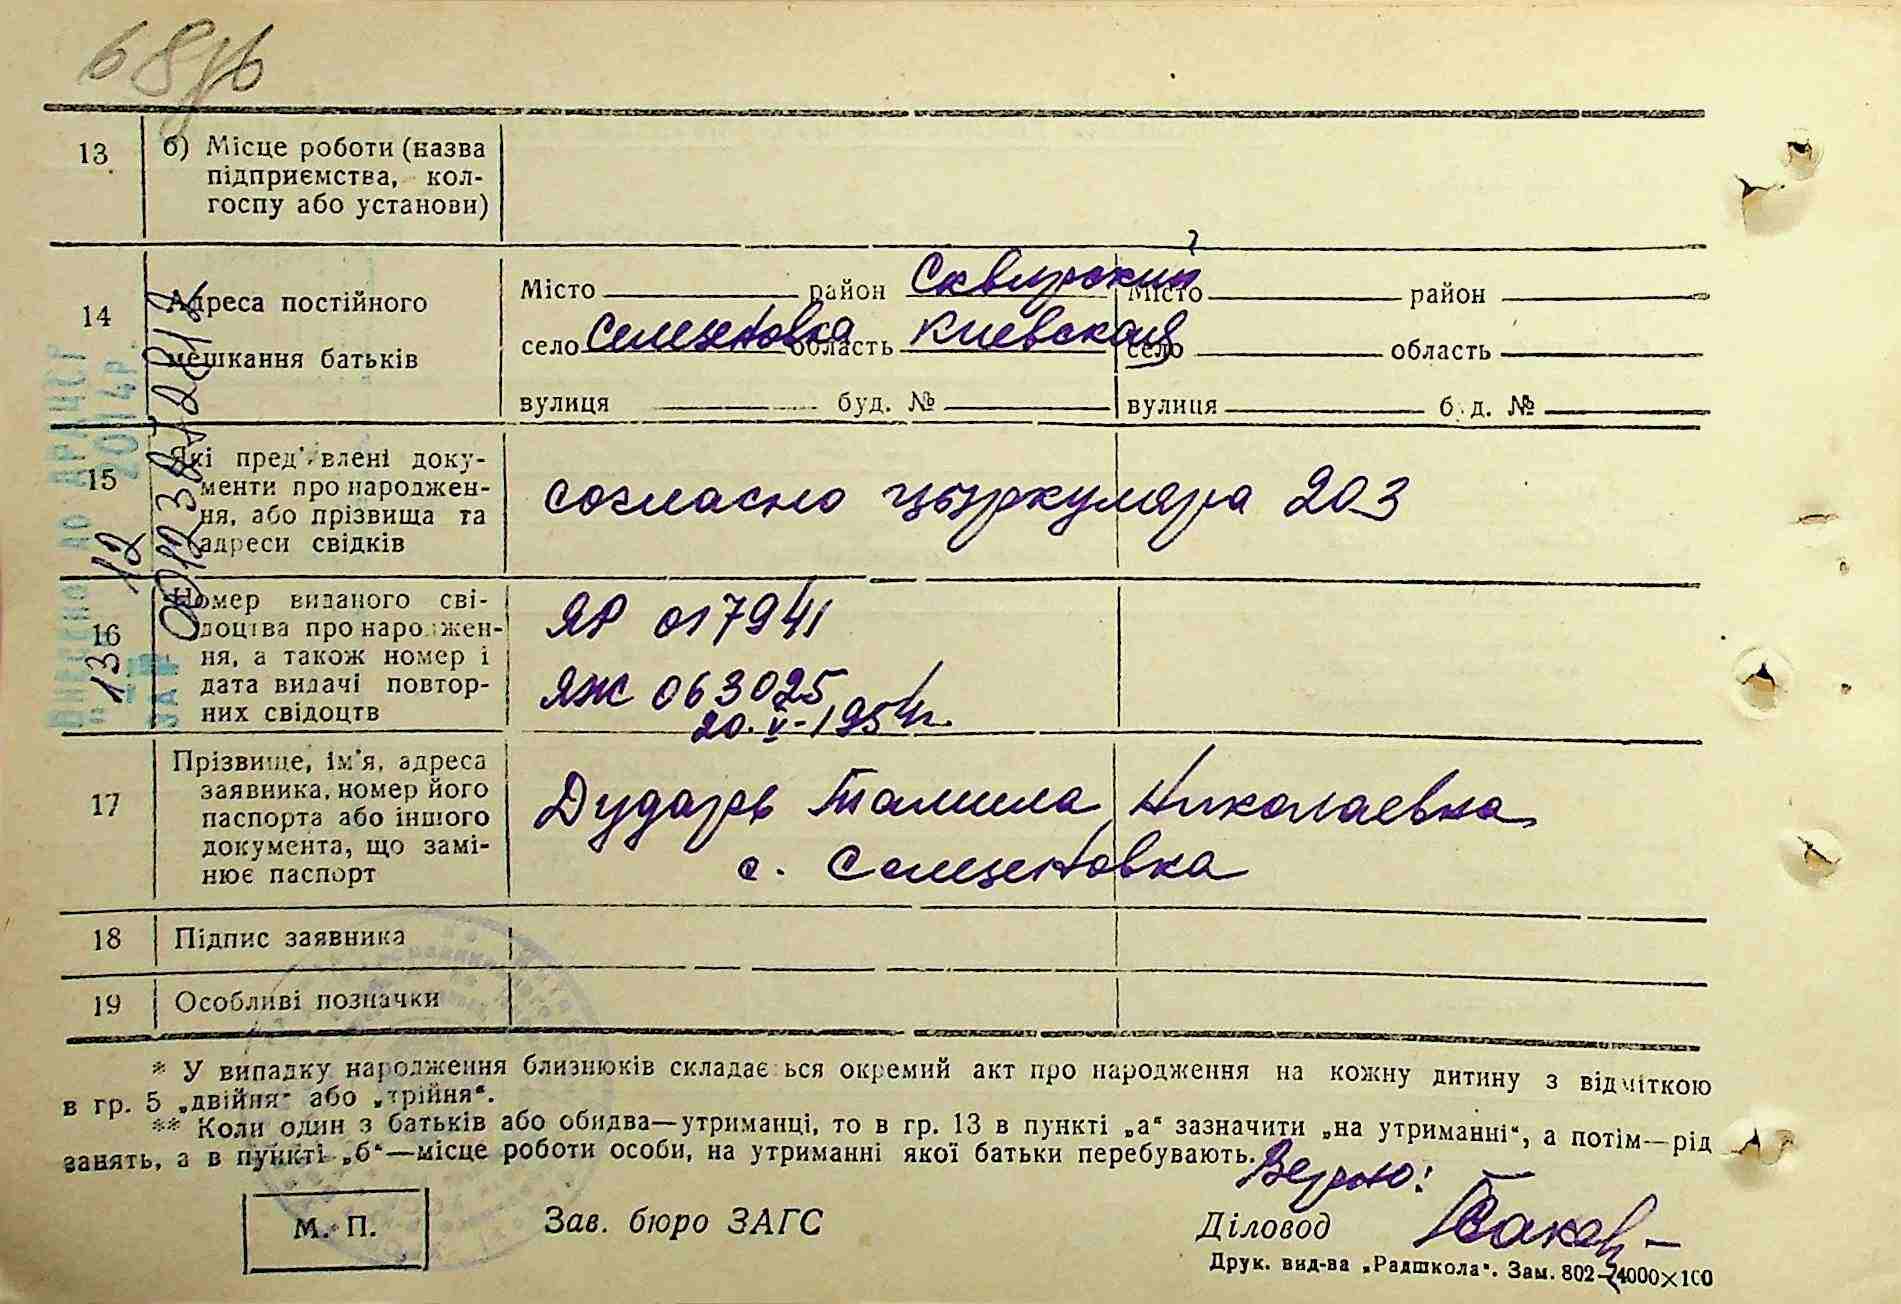 13 б) Місце роботи (назва
підприємства, кол-
госпу або установи)
14 Адреса постійного
мешкання батьків
Місто район Сквирский Місто район
село Селезеновка область Киевская село область
вулиця буд. № вулиця буд. №
15 Які пред'явлені доку-
менти про народжен-
ня, або прізвища та
адреси свідків
согласно циркуляра 203
16 Номер виданого сві-
доцтва про народжен-
ня, а також номер і
дата видачі повтор-
них свідоцтв
ЯР 017941
ЯЖ 063025
20.V-1954г.
17 Прізвище, ім'я, адреса
заявника, номер його
паспорта або іншого
документа, що замі-
нює паспорт
Дударь Тамила Николаевна
с.
18 Підпис заявника
19 Особливі позначки
* У випадку народження близнюків складається окремий акт про народження на кожну дитину з відміткою
в гр. 5 „двійня" або „трійня".
** Коли один з батьків або обидва—утриманці, то в гр. 13 в пункті „а" зазначити „на утриманні", а потім—рід
занять, а в пункті „б"—місце роботи особи, на утриманні якої батьки перебувають.
Верно:
М. П. Зав. бюро ЗАГС Діловод
Друк. вид-ва „Радшкола". Зам. 802—4000×100